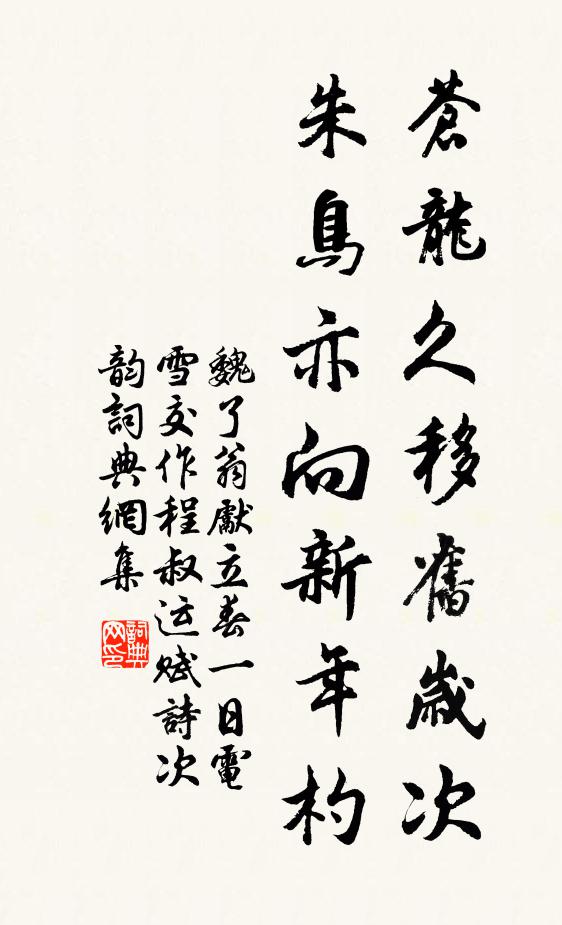 蒼龍久移舊歲次
朱鳥亦向新年杓
魏了翁獻立春一日電
雪交作程叔运賦詩次
韵詞典網集
詞典
网印